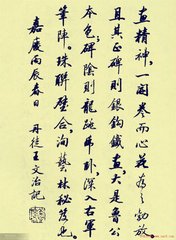 直精神,一開卷而心花為之勃放
且其正碑則銀鈎鐵畫,大是魯公
本色;碑陰則龍跳乕卧,深入右軍
筆陣。珠聯璧合,洵藝林秘笈也。
嘉慶丙辰春日
丹徒王文治記